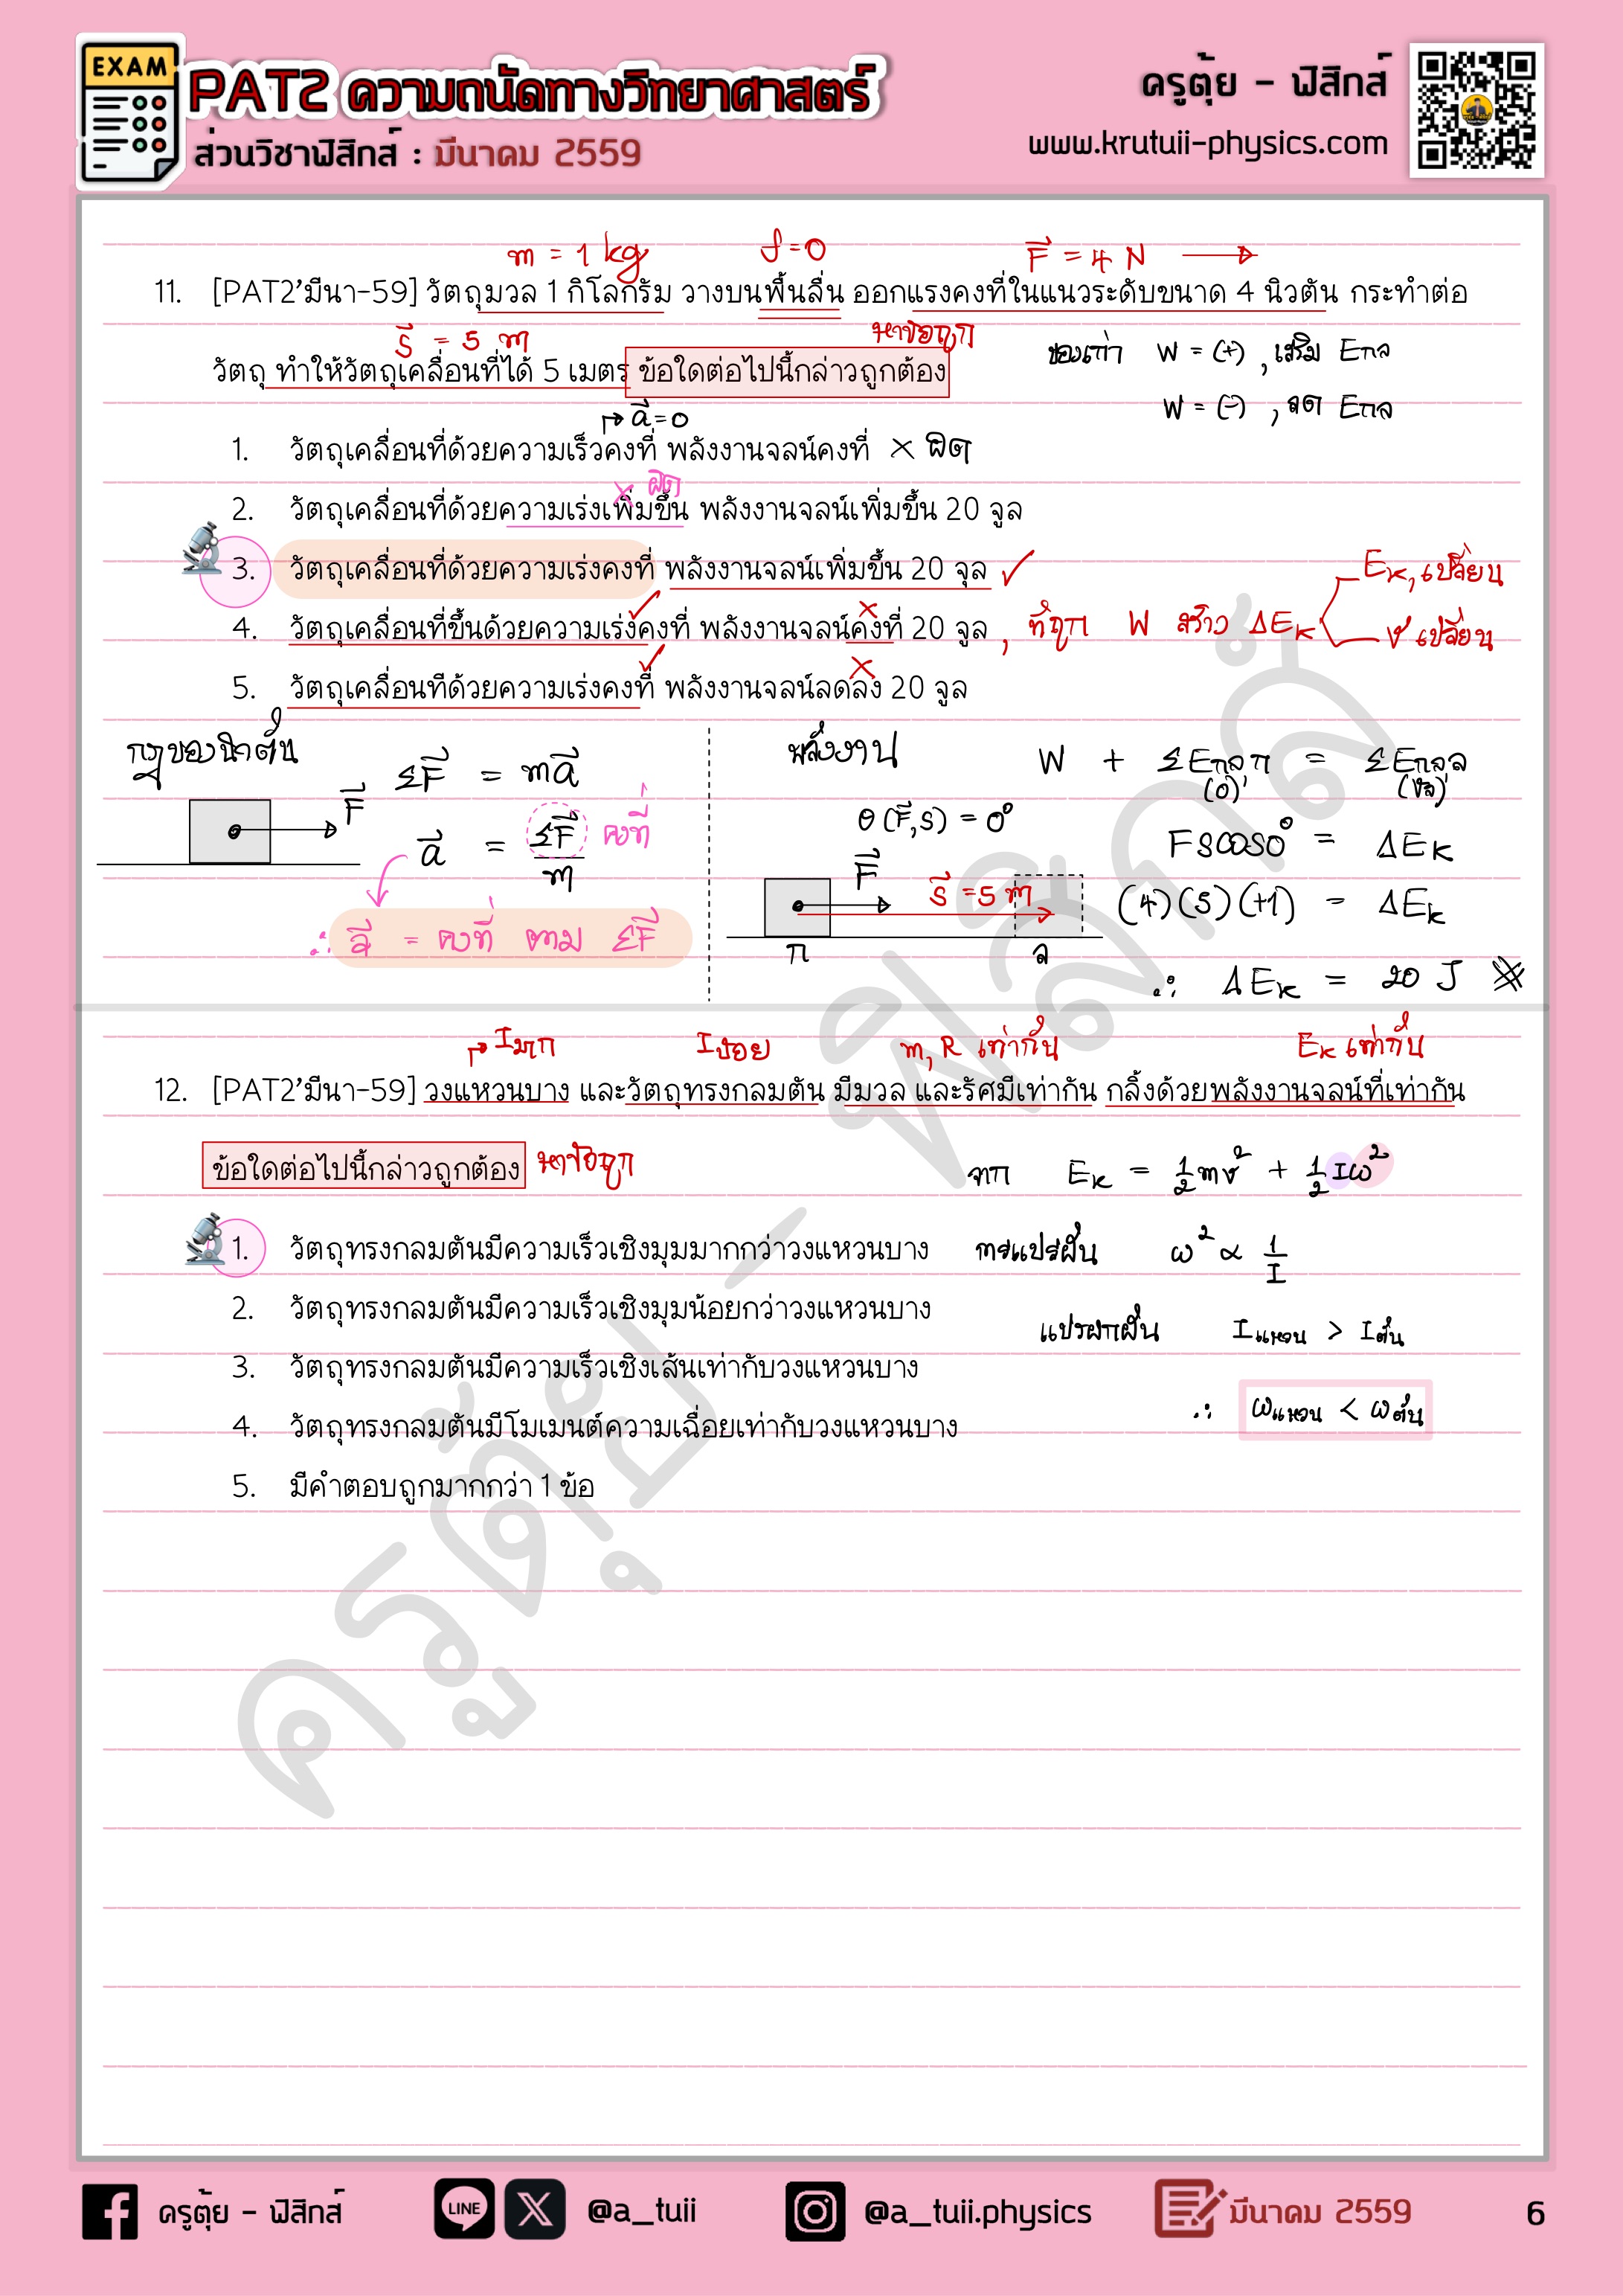 EXAM
PAT2 ความถนัดทางวิทยาศาสตร์
ส่วนวิชาฟิสิกส์ : มีนาคม 2559
ครูตุ้ย - ฟิสิกส์
www.krutuii-physics.com
m = 1 kg f=0 F = 4 N
11. [PAT2'มีนา-59] วัตถุมวล 1 กิโลกรัม วางบนพื้นลื่น ออกแรงคงที่ในแนวระดับขนาด 4 นิวตัน กระทำต่อ
s = 5 m หาข้อถูก
วัตถุ ทำให้วัตถุเคลื่อนที่ได้ 5 เมตร ข้อใดต่อไปนี้กล่าวถูกต้อง
ของเก่า W = (+) , เสริม Eกล
W = (-) , ลด Eกล
a=0
1. วัตถุเคลื่อนที่ด้วยความเร็วคงที่ พลังงานจลน์คงที่ × ผิด
× ผิด
2. วัตถุเคลื่อนที่ด้วยความเร่งเพิ่มขึ้น พลังงานจลน์เพิ่มขึ้น 20 จูล
3. วัตถุเคลื่อนที่ด้วยความเร่งคงที่ พลังงานจลน์เพิ่มขึ้น 20 จุล ✓
4. วัตถุเคลื่อนที่ขึ้นด้วยความเร่งคงที่ พลังงานจลน์คงที่ 20 จูล , ที่ถูก W สร้าง ΔEk
Ek, เปลี่ยน
v เปลี่ยน
5. วัตถุเคลื่อนทีด้วยความเร่งคงที่ พลังงานจลน์ลดลง 20 จูล
กฎของนิวตัน
ΣF = ma
F
a = ΣF/m คงที่
∴ a = คงที่ ตาม ΣF
พลังงาน
W + ΣEกล,ก = ΣEกล,ล
(0) (v²)
θ(F,s) = 0°
Fscos0° = ΔEk
F s = 5 m
(4)(5)(+1) = ΔEk
ก ล
∴ ΔEk = 20 J
Iมาก Iน้อย m, R เท่ากัน Ek เท่ากัน
12. [PAT2'มีนา-59] วงแหวนบาง และวัตถุทรงกลมตัน มีมวล และรัศมีเท่ากัน กลิ้งด้วยพลังงานจลน์ที่เท่ากัน
ข้อใดต่อไปนี้กล่าวถูกต้อง หาข้อถูก
จาก Ek = 1/2 mv² + 1/2 Iω²
1. วัตถุทรงกลมตันมีความเร็วเชิงมุมมากกว่าวงแหวนบาง การแปรผัน ω² ∝ 1/I
2. วัตถุทรงกลมตันมีความเร็วเชิงมุมน้อยกว่าวงแหวนบาง
แปรผกผัน Iแหวน > Iตัน
3. วัตถุทรงกลมตันมีความเร็วเชิงเส้นเท่ากับวงแหวนบาง
∴ ωแหวน < ωตัน
4. วัตถุทรงกลมตันมีโมเมนต์ความเฉื่อยเท่ากับวงแหวนบาง
5. มีคำตอบถูกมากกว่า 1 ข้อ
ครูตุ้ย - ฟิสิกส์
ครูตุ้ย - ฟิสิกส์
LINE
@a_tuii
@a_tuii.physics
มีนาคม 2559
6